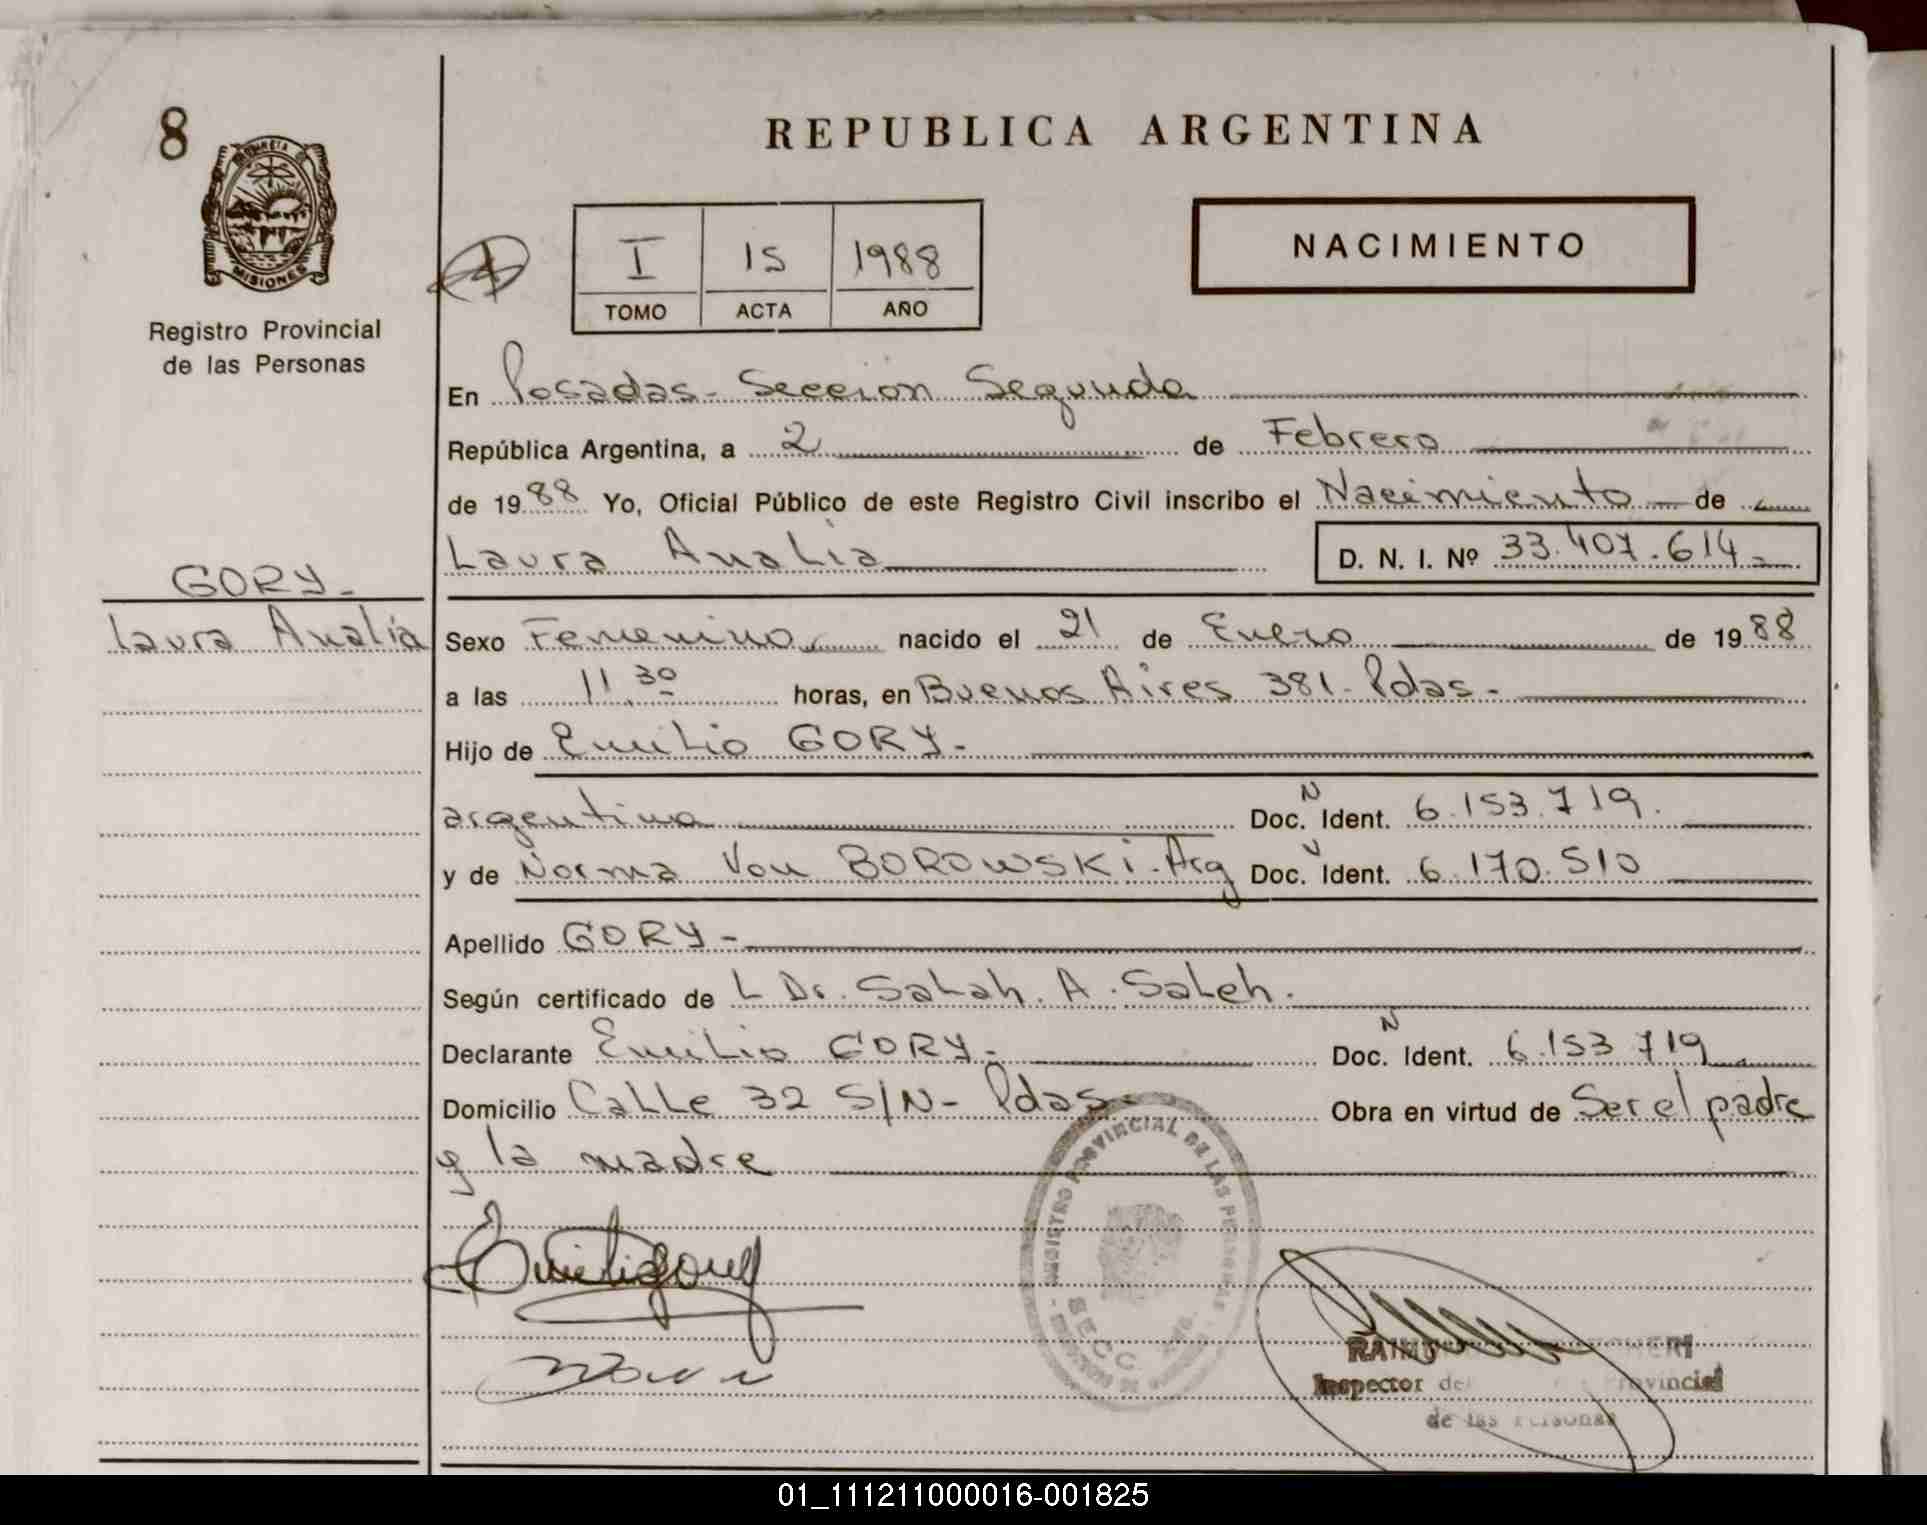 8
PROVINCIA DE
MISIONES
Registro Provincial
de las Personas
GORY-
Laura Analía
REPUBLICA ARGENTINA
I 15 1988
TOMO ACTA AÑO
NACIMIENTO
En Posadas - Sección Segunda
República Argentina, a 2 de Febrero
de 1988 Yo, Oficial Público de este Registro Civil inscribo el Nacimiento de
Laura Analia D. N. I. Nº 33.407.614
Sexo Femenino nacido el 21 de Enero de 1988
a las 11.30 horas, en Buenos Aires 381 - Pdas.
Hijo de Emilio GORY.
argentino Doc. N Ident. 6.153.719.
y de Norma Von BOROWSKi. Arg Doc. Ident. 6.170.510
Apellido GORY -
Según certificado de L Dr. Salah. A. Saleh.
Declarante Emilio GORY. Doc. N Ident. 6.153.719
Domicilio Calle 32 S/N - Pdas. Obra en virtud de Ser el padre
y la madre
REGISTRO PROVINCIAL DE LAS PERSONAS
SECC.
Inspector del Provincial
de las Personas
01_111211000016-001825